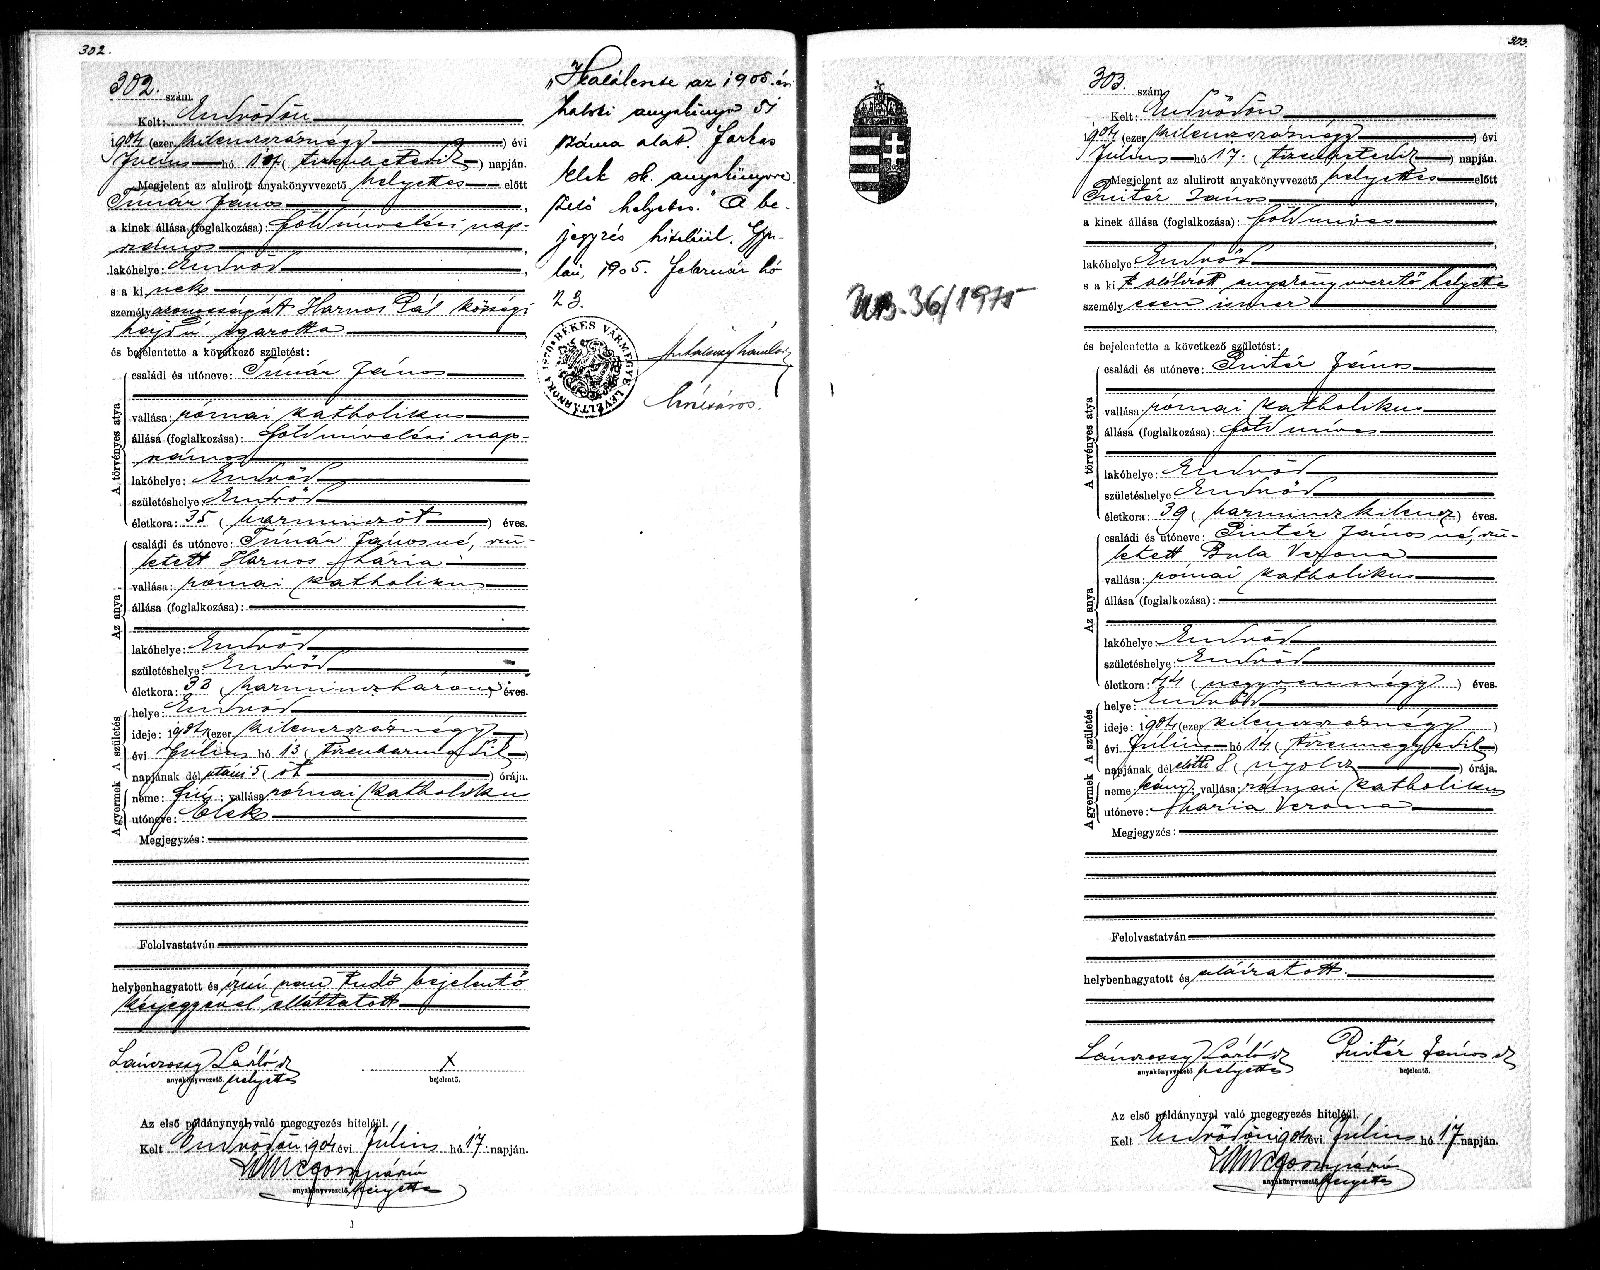 302.
302. szám.
Kelt: Endrődön
1904 (ezer kilenczszáznégy) évi
Július hó 17. (tizenhetedik) napján.
Megjelent az alulirott anyakönyvvezető helyettes előtt
Timár János
a kinek állása (foglalkozása): földmívelési nap-
számos
lakóhelye: Endrőd
s a ki nek
személyazonosságát Harnos Pál községi
hajdú igazolta
és bejelentette a következő születést:
A törvényes atya
családi és utóneve: Timár János
vallása: római katholikus
állása (foglalkozása): földmívelési nap-
számos
lakóhelye: Endrőd
születéshelye: Endrőd
életkora: 35 (harminczöt) éves.
Az anya
családi és utóneve: Timár Jánosné, szü-
letett Harnos Mária
vallása: római katholikus
állása (foglalkozása):
lakóhelye: Endrőd
születéshelye: Endrőd
életkora: 33 (harminczhárom) éves.
A gyermek A születés
helye: Endrőd
ideje: 1904 (ezer kilenczszáznégy)
évi Július hó 13 (tizenharmadik)
napjának dél utáni 5 (öt) órája.
neme: fiú; vallása: római katholikus
utóneve: Elek
Megjegyzés:
Felolvastatván
helybenhagyatott és írni nem tudó bejelentő
kézjegyével elláttatott
Lánczossy László
anyakönyvvezető helyettes
x
bejelentő.
Az első példánynyal való megegyezés hiteléül.
Kelt Endrődön 1904 évi Július hó 17. napján.
anyakönyvvezető helyettes
1
„Halálesete az 1905. évi
halotti anyakönyv 51
száma alatt. Farkas
Elek sk. anyakönyvve-
zető helyettes." A be-
jegyzés hiteléül. Gyu-
lán, 1905. Február hó
23.
BÉKÉS VÁRMEGYE LEVÉLTÁRNOKA 1870
303.
303. szám.
Kelt: Endrődön
1904 (ezer kilenczszáznégy) évi
Július hó 17. (tizenhetedik) napján.
Megjelent az alulirott anyakönyvvezető helyettes előtt
Pintér János
a kinek állása (foglalkozása): földmíves
lakóhelye: Endrőd
s a kit alólirott anyakönyvvezető helyettes
személyesen ismer
és bejelentette a következő születést:
A törvényes atya
családi és utóneve: Pintér János
vallása: római katholikus
állása (foglalkozása): földmíves
lakóhelye: Endrőd
születéshelye: Endrőd
életkora: 39 (harminczkilencz) éves.
Az anya
családi és utóneve: Pintér Jánosné, szü-
letett Bula Verona
vallása: római katholikus
állása (foglalkozása):
lakóhelye: Endrőd
születéshelye: Endrőd
életkora: 44 (negyvennégy) éves.
A gyermek A születés
helye: Endrőd
ideje: 1904 (ezer kilenczszáznégy)
évi Július hó 14 (tizennegyedik)
napjának dél előtti 8 (nyolcz) órája.
neme: leány; vallása: római katholikus
utóneve: Mária Verona
Megjegyzés:
Felolvastatván
helybenhagyatott és aláíratott.
Lánczossy László
anyakönyvvezető helyettes
Pintér János
bejelentő.
Az első példánynyal való megegyezés hiteléül.
Kelt Endrődön 1904 évi Július hó 17 napján.
anyakönyvvezető helyettes
36/1975